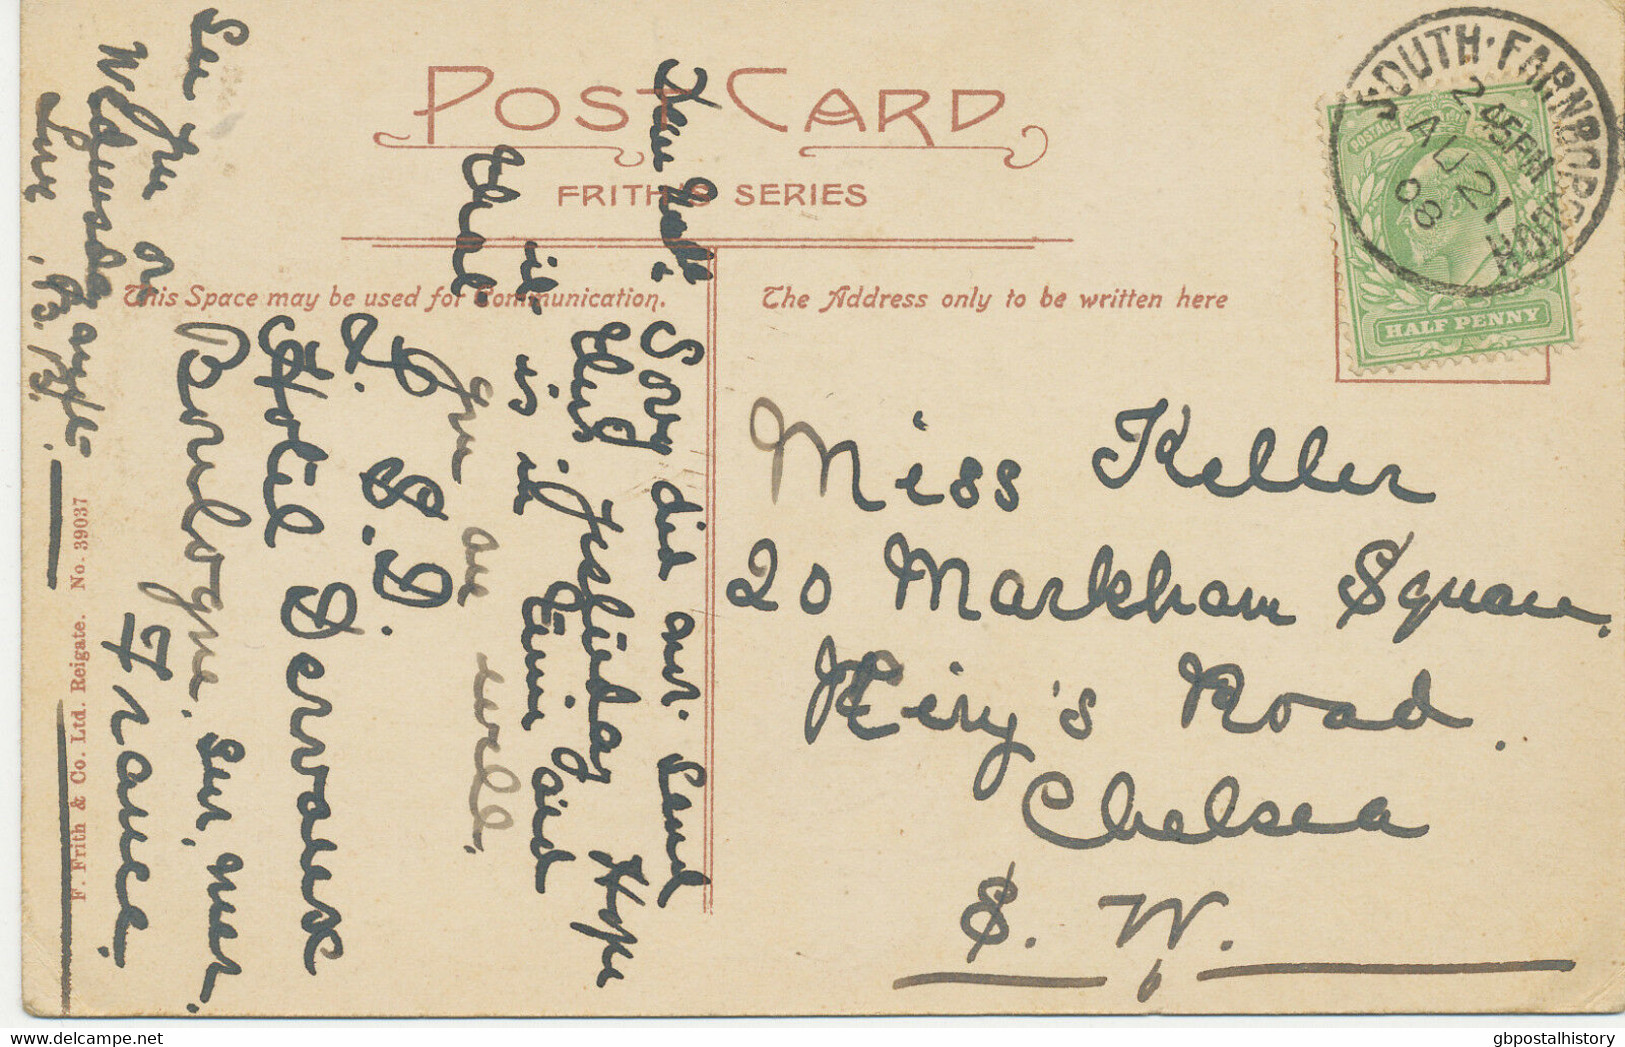 POST CARD
FRITH'S SERIES
This Space may be used for Communication.
The Address only to be written here
SOUTH·FARNBORO
2 45 PM
AU 21
08
HALF PENNY
Miss Keller
20 Markham Square.
King's Road.
Chelsea
S. W.
Sorry did not send
Yesterday Hope
it is in Time and
that you are well.
S. D.
Hotel Dervaux
Boulogne. sur. mer.
France.
See you on
Wednesday
Love
F. Frith & Co. Ltd. Reigate. No. 39037
delcampe.net
gbpostalhistory